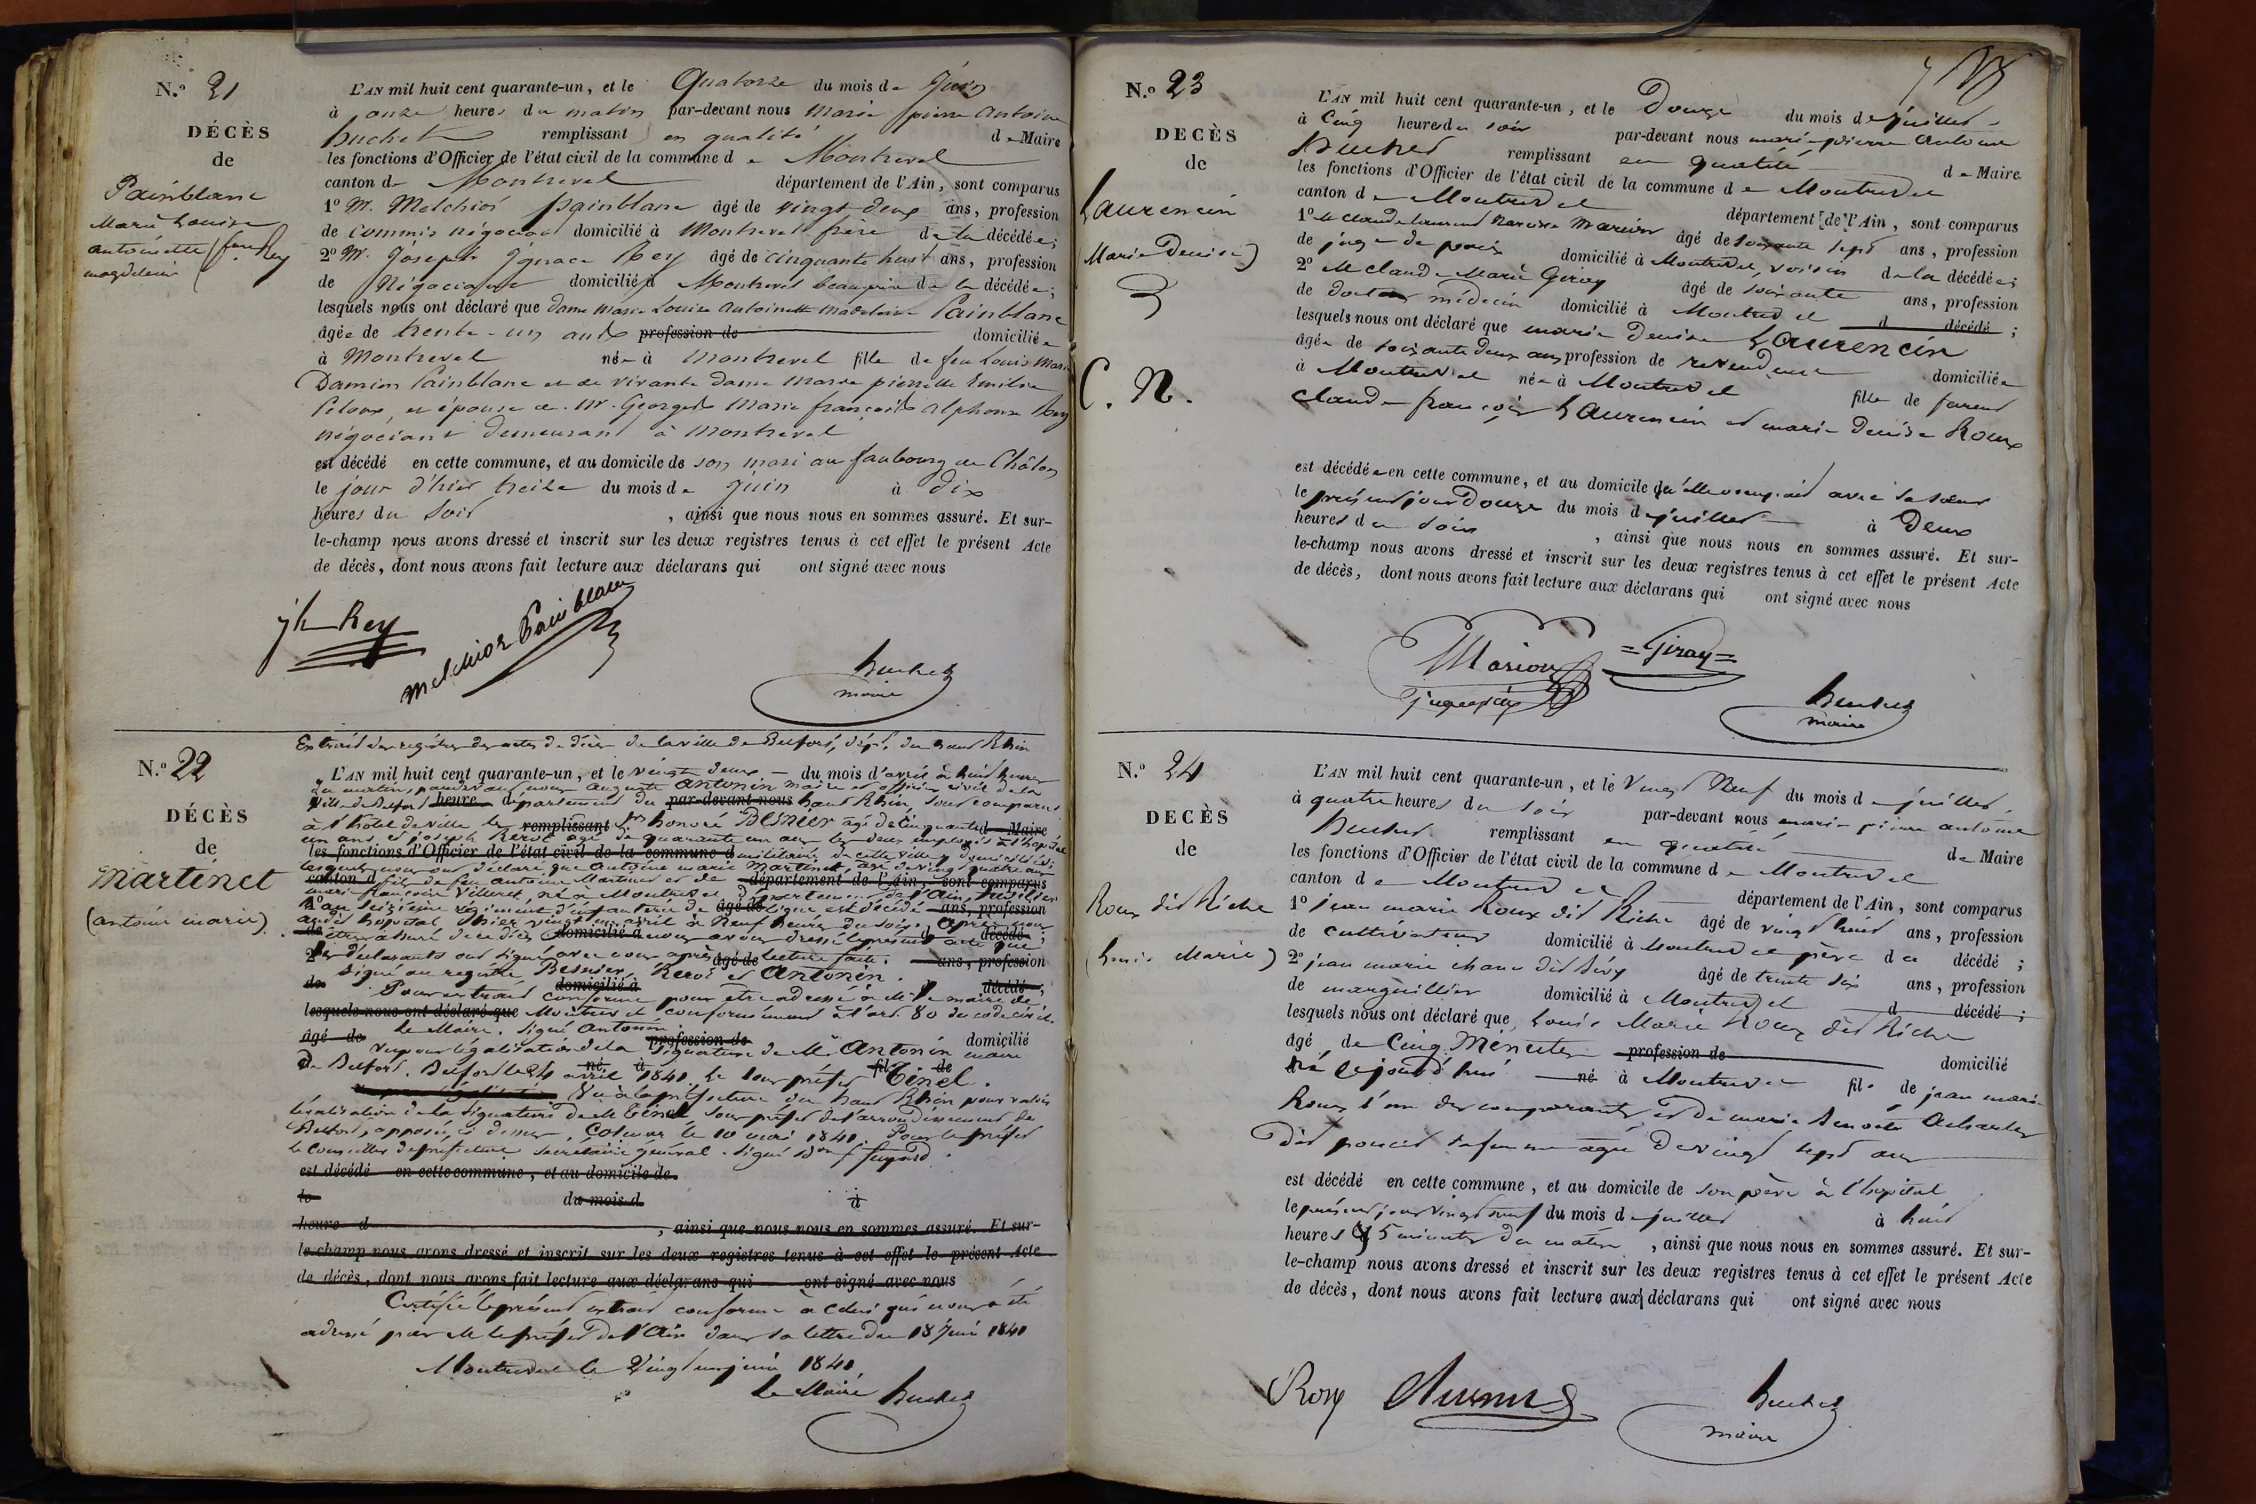 N.º 21
DÉCÈS
de
Painblanc
Marie Louise
antoinette fme Rey
magdeleine
L'AN mil huit cent quarante-un, et le Quatorze du mois de Juin
à onze heures du matin par-devant nous Marie pierre Antoine
huchet remplissant en qualité de Maire
les fonctions d'Officier de l'état civil de la commune de Montrevel
canton de Montrevel département de l'Ain, sont comparus
1º Mr. Melchior painblanc âgé de vingt deux ans, profession
de commis négociant domicilié à Montrevel frère de la décédée;
2º Mr. Joseph Ignace Rey âgé de cinquante huit ans, profession
de Négociant domicilié à Montrevel beau père de la décédée;
lesquels nous ont déclaré que dame Marie Louise Antoinette Madeleine Painblanc
âgée de trente-un ans profession de domiciliée
à Montrevel née à Montrevel fille de feu Louis Marie
Damien Painblanc et de vivante dame Marie pierrette Emilie
Peloux, et épouse de Mr. Georges Marie françois alphonse Rey
négociant demeurant à Montrevel
est décédé en cette commune, et au domicile de son mari au faubourg de Châlon
le jour d'hier treize du mois de Juin à dix
heures du Soir, ainsi que nous nous en sommes assuré. Et sur-
le-champ nous avons dressé et inscrit sur les deux registres tenus à cet effet le présent Acte
de décès, dont nous avons fait lecture aux déclarans qui ont signé avec nous
jh Rey
melchior Painblanc
huchet
maire
N.º 22
DÉCÈS
de
Martinet
(antoine marie)
Extrait des registres des actes de décès de la ville de Belfort, dépt. du haut Rhin
L'AN mil huit cent quarante-un, et le vingt deux du mois d'avril à huit heures
du matin, pardevant nous Auguste Antonin maire et officier civil de la
Ville de Belfort heure département du par-devant nous haut Rhin, sont comparus
à l'hôtel de ville les remplissant Srs honoré Besnier âgé de cinquante d Maire
un ans et joseph Revoi âgé de quarante un ans les deux employés à l'hopital
les fonctions d'Officier de l'état civil de la commune d militaire de cette ville y domiciliés;
lesquels nous ont déclaré que Antoine marie Martinet, âgé de vingt quatre ans
canton d fils de feu antoine Martinet et de département de l'Ain, sont comparus
marie françoise Villeret, né à Montrevel département de l'Ain, fusilier
1º au seizième régiment d'infanterie de âgé de ligne est décédé ans, profession
audit hopital hier vingt un avril à Neuf heures du soir. Après nous
de être assuré de ce décès domicilié à nous avons dressé le présent acte que d décédé;
2º les déclarants ont signé avec nous après âgé de lecture faite. ans, profession
Signé au registre Besnier, Revoi et Antonin.
de domicilié à d décédé;
Pour extrait conforme pour être adressé à Mr le maire de
lesquels nous ont déclaré que Montrevel conformément à l'art. 80 du code civil.
Le Maire. Signé Antonin.
âgé de profession de domicilié
Vu pour légalisation de la Signature de Mr Antonin maire
à né à fil de
De Belfort. Belfort le 24 avril 1841 le Sous préfet Tinel.
Vu à la préfecture du haut Rhin pour valoir
légalisation de la signature de M Tinel Sous préfet de l'arrondissement de
Belfort, apposée ci dessus. Colmar le 10 mai 1841 Pour le préfet
le Conseiller de préfecture secrétaire général. Signé
est décédé en cette commune, et au domicile de
le du mois d à
heure d , ainsi que nous nous en sommes assuré. Et sur-
le-champ nous avons dressé et inscrit sur les deux registres tenus à cet effet le présent Acte
de décès, dont nous avons fait lecture aux déclarans qui ont signé avec nous
Certifié le présent extrait conforme à celui qui nous a été
adressé par M le préfet de l'Ain dans sa lettre du 18 Juin 1841
Montrevel le Vingt un juin 1841
Le Maire huchet
N.º 23
DECÈS
de
Laurencin
(Marie Denise)
C. N.
L'AN mil huit cent quarante-un, et le Douze du mois de juillet
à Cinq heures du soir par-devant nous marie pierre Antoine
huchet remplissant en qualité de Maire
les fonctions d'Officier de l'état civil de la commune de Montrevel
canton de Montrevel département de l'Ain, sont comparus
1º M Claude laurent Narcisse Marion âgé de soixante sept ans, profession
de juge de paix domicilié à Montrevel, voisin de la décédée;
2º M Claude Marie Giray âgé de soixante ans, profession
de docteur médecin domicilié à Montrevel d décédé;
lesquels nous ont déclaré que marie Denise Laurencin
âgée de soixante deux ans profession de revendeuse domiciliée
à Montrevel née à Montrevel fille de furent
Claude françois Laurencin et marie Denise Roux
est décédée en cette commune, et au domicile qu'elle occupait avec sa soeur
le présent jour Douze du mois de juillet à Deux
heures du soir, ainsi que nous nous en sommes assuré. Et sur-
le-champ nous avons dressé et inscrit sur les deux registres tenus à cet effet le présent Acte
de décès, dont nous avons fait lecture aux déclarans qui ont signé avec nous
Marion
juge de paix
=Giray=
huchet
maire
N.º 24
DECÈS
de
Roux dit Riche
(Louis Marie)
L'AN mil huit cent quarante-un, et le Vingt Neuf du mois de juillet
à quatre heures du soir par-devant nous marie pierre antoine
huchet remplissant en qualité de Maire
les fonctions d'Officier de l'état civil de la commune de Montrevel
canton de Montrevel département de l'Ain, sont comparus
1º jean marie Roux dit Riche âgé de vingt huit ans, profession
de cultivateur domicilié à Montrevel père du décédé;
2º jean marie chanu dit Févy âgé de trente six ans, profession
de marguillier domicilié à Montrevel d décédé;
lesquels nous ont déclaré que Louis Marie Roux dit Riche
âgé de Cinq Minutes profession de domicilié
né ce jourd'hui né à Montrevel fils de jean marie
Roux l'un des comparants et de marie Benoite
dit poncet sa femme agée de vingt sept ans
est décédé en cette commune, et au domicile de son père à l'hopital
le présent jour vingt neuf du mois de juillet à huit
heures & 5 minutes du matin, ainsi que nous nous en sommes assuré. Et sur-
le-champ nous avons dressé et inscrit sur les deux registres tenus à cet effet le présent Acte
de décès, dont nous avons fait lecture aux déclarans qui ont signé avec nous
Roux
huchet
maire